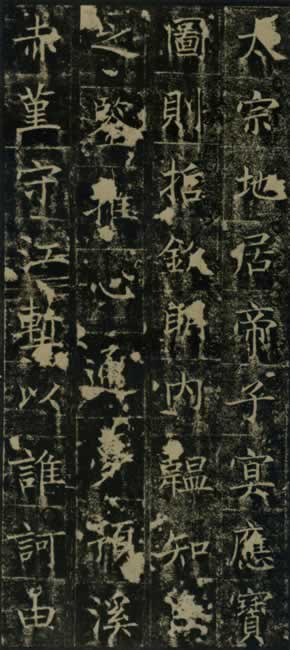 太宗地居帝子冥應寶
圖則哲欽明內韞知
之鑒推心通夢預溪
赤堇守江塹以誰訶由